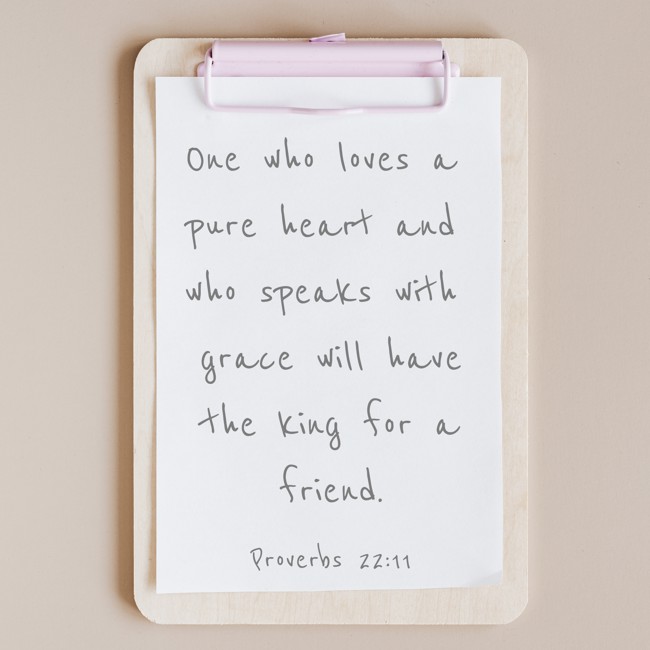 One who loves a
pure heart and
who speaks with
grace will have
the king for a
friend.
Proverbs 22:11